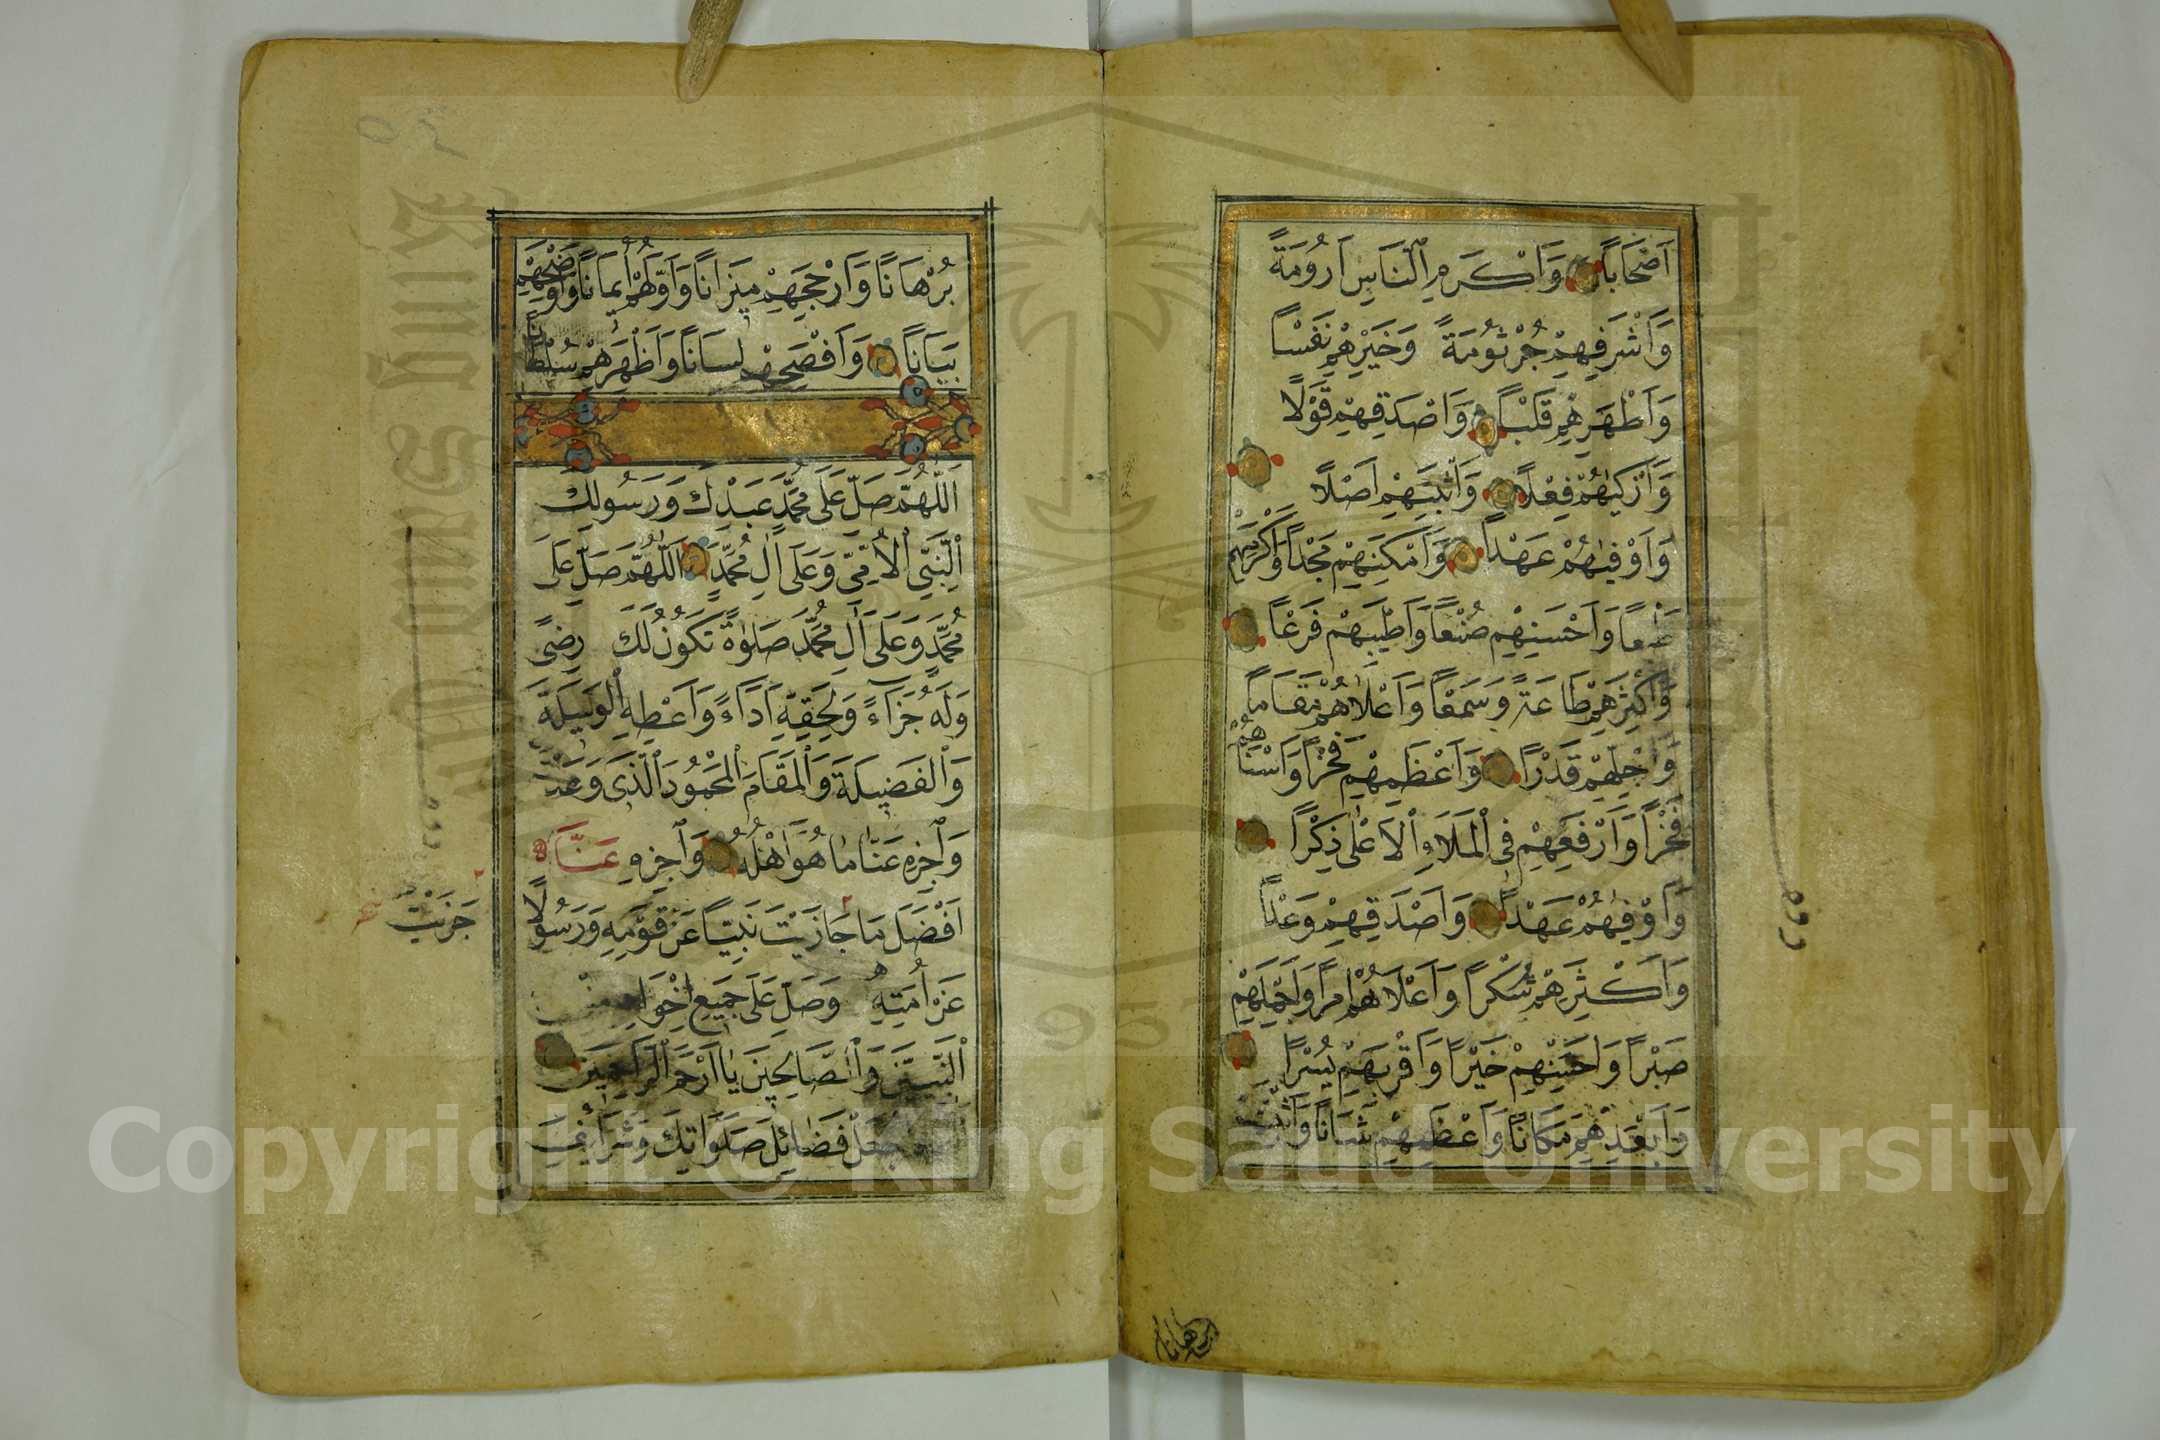 اَصْحَابًا وَاَكْرَمِ النَّاسِ اَرُومَةً
وَاَشْرَفِهِمْ جُرْثُومَةً وَخَيْرِهِمْ نَفْسًا
وَاَطْهَرِهِمْ قَلْبًا وَاَصْدَقِهِمْ قَوْلًا
وَاَزْكٰيهُمْ فِعْلًا وَاَثْبَتِهِمْ اَصْلًا
وَاَوْفٰيهُمْ عَهْدًا وَاَمْكَنِهِمْ مَجْدًا وَاَكْرَمِهِمْ
طَبْعًا وَاَحْسَنِهِمْ صُنْعًا وَاَطْيَبِهِمْ فَرْعًا
وَاَكْثَرِهِمْ طَاعَةً وَسَمْعًا وَاَعْلَاهُمْ مَقَامًا
وَاَجَلِّهِمْ قَدْرًا وَاَعْظَمِهِمْ فَخْرًا وَاَسْنَاهُمْ
فَخْرًا وَاَرْفَعِهِمْ فِى الْمَلَاءِ الْاَعْلٰى ذِكْرًا
وَاَوْفٰيهُمْ عَهْدًا وَاَصْدَقِهِمْ وَعْدًا
وَاَكْثَرِهِمْ شُكْرًا وَاَعْلَاهُمْ اَمْرًا وَاَجْمَلِهِمْ
صَبْرًا وَاَحْسَنِهِمْ خَيْرًا وَاَقْرَبِهِمْ يُسْرًا
وَاَبْعَدِهِمْ مَكَانًا وَاَعْظَمِهِمْ شَانًا وَاَثْبَتِهِمْ
برهانا
بُرْهَانًا وَاَرْجَحِهِمْ مِيزَانًا وَاَوَّلِهِمْ اِيمَانًا وَاَوْضَحِهِمْ
بَيَانًا وَاَفْصَحِهِمْ لِسَانًا وَاَظْهَرِهِمْ سُلْطَانًا
اَللّٰهُمَّ صَلِّ عَلٰى مُحَمَّدٍ عَبْدِكَ وَرَسُولِكَ
النَّبِىِّ الْاُمِّىِّ وَعَلٰى اٰلِ مُحَمَّدٍ اَللّٰهُمَّ صَلِّ عَلٰى
مُحَمَّدٍ وَعَلٰى اٰلِ مُحَمَّدٍ صَلٰوةً تَكُونُ لَكَ رِضًى
وَلَهُ جَزَاءً وَلِحَقِّهِ اَدَاءً وَاَعْطِهِ الْوَسِيلَةَ
وَالْفَضِيلَةَ وَالْمَقَامَ الْمَحْمُودَ الَّذِى وَعَدْتَهُ
وَاجْزِهِ عَنَّا مَا هُوَ اَهْلُهُ وَاجْزِهِ عَنَّا
اَفْضَلَ مَا جَازَيْتَ نَبِيًّا عَنْ قَوْمِهِ وَرَسُولًا
جَزَيْتَ
عَنْ اُمَّتِهِ وَصَلِّ عَلٰى جَمِيعِ اِخْوَانِهِ مِنَ
النَّبِيِّينَ وَالصَّالِحِينَ يَا اَرْحَمَ الرَّاحِمِينَ
اجْعَلْ فَضَائِلَ صَلَوَاتِكَ وَشَرَائِفَ
Copyright © King Saud University